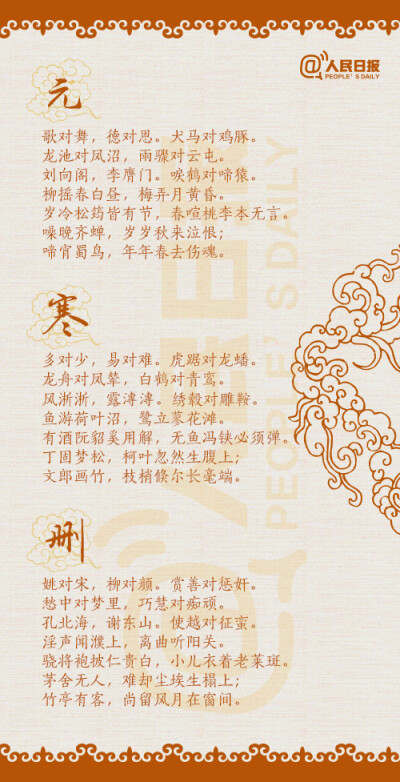 @人民日报
PEOPLE'S DAILY
元
歌对舞，德对恩。犬马对鸡豚。
龙池对凤沼，雨骤对云屯。
刘向阁，李膺门。唳鹤对啼猿。
柳摇春白昼，梅弄月黄昏。
岁冷松筠皆有节，春喧桃李本无言。
噪晚齐蝉，岁岁秋来泣恨；
啼宵蜀鸟，年年春去伤魂。
寒
多对少，易对难。虎踞对龙蟠。
龙舟对凤辇，白鹤对青鸾。
风淅淅，露漙漙。绣毂对雕鞍。
鱼游荷叶沼，鹭立蓼花滩。
有酒阮貂奚用解，无鱼冯铗必须弹。
丁固梦松，柯叶忽然生腹上；
文郎画竹，枝梢倏尔长毫端。
删
姚对宋，柳对颜。赏善对惩奸。
愁中对梦里，巧慧对痴顽。
孔北海，谢东山。使越对征蛮。
淫声闻濮上，离曲听阳关。
骁将袍披仁贵白，小儿衣着老莱斑。
茅舍无人，难却尘埃生榻上；
竹亭有客，尚留风月在窗间。